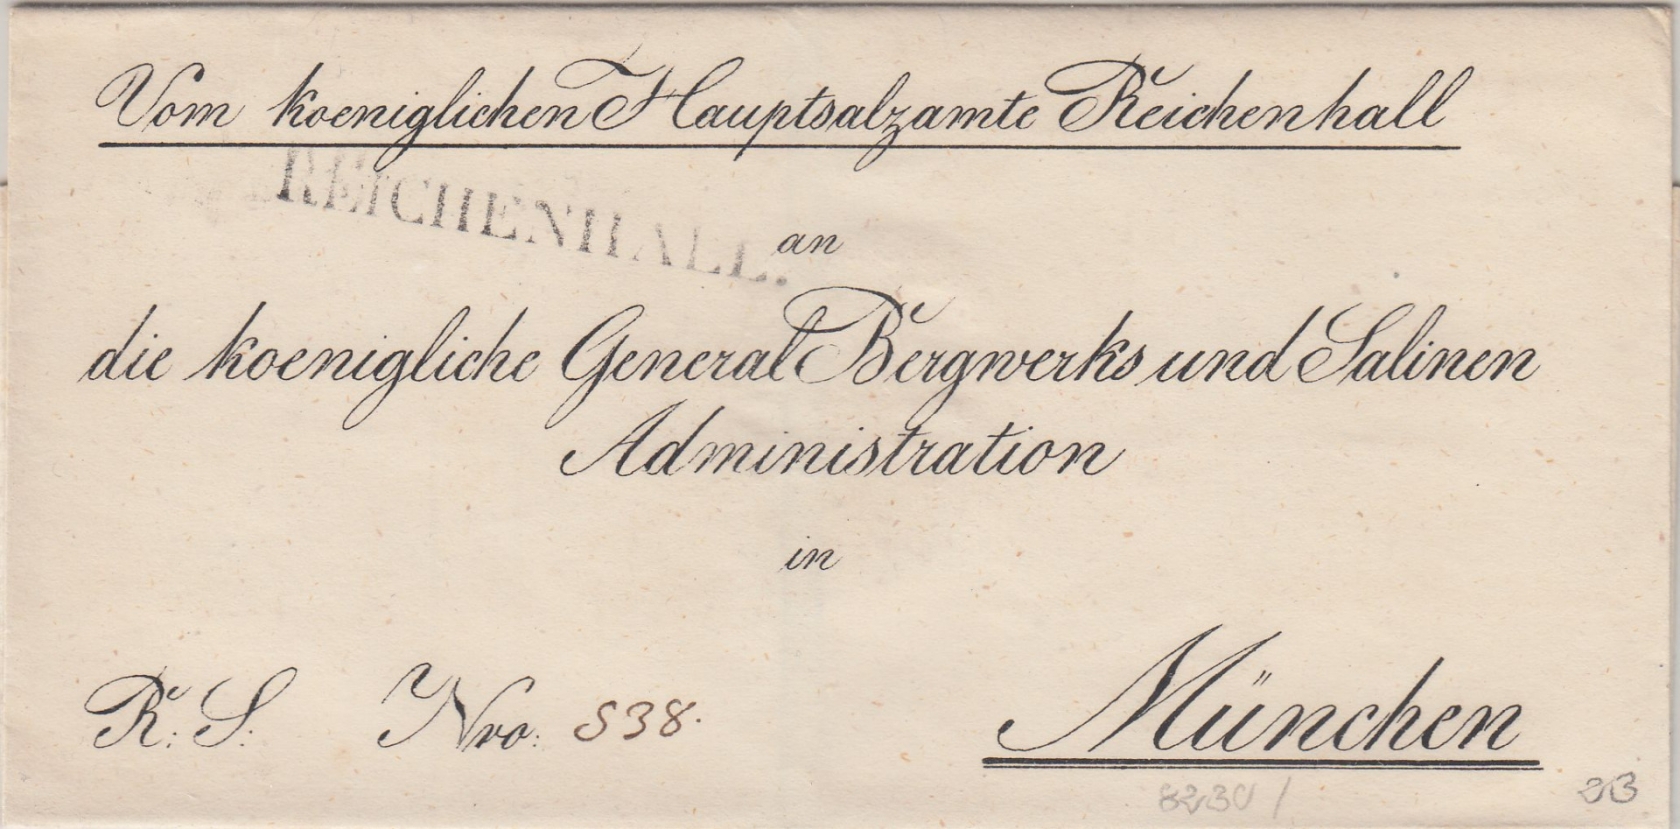 Vom koeniglichen Hauptsalzamte Reichenhall
REICHENHALL.
an
die koenigliche General Bergwerks und Salinen
Administration
in
München
R: S: Nro: 538.
8230 /
23